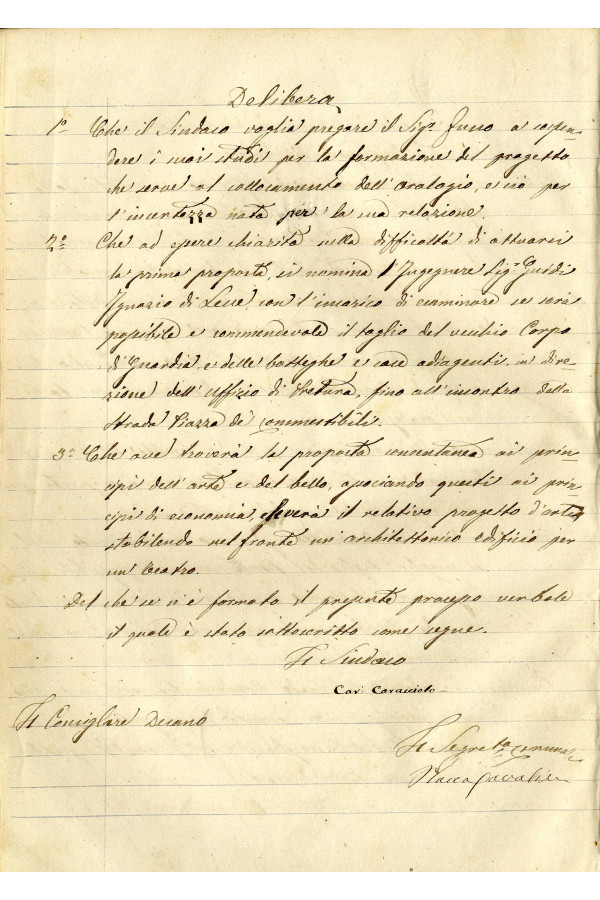 Delibera
1º Che il Sindaco voglia pregare il Sigr. Fuso a sospen-
dere i suoi studi per la formazione del progetto
che serve al collocamento dell'orologio, e ciò per
l'incertezza nata per la sua relazione.
2º Che ad essere chiarita sulla difficoltà di attuarsi
la prima proposta, si nomina l'Ingegnere Sigr. Guidi
Ignazio di Lecce, con l'incarico di esaminare se sarà
possibile e commendevole il taglio del vecchio Corpo
di Guardia, e delle botteghe e case adiagenti, in dire-
zione dell'Uffizio di Pretura, fino all'incontro della
Strada Piazza de' Commestibili.
3º Che ove troverà la proposta consentanea ai prin-
cipi dell'arte e del bello, associando questi ai prin-
cipi di economia, eleverà il relativo progetto d'arte
stabilendo nel fronte un architettonico edificio per
un Teatro.
Del che se n'è formato il presente processo verbale
il quale è stato sottoscritto come segue.
Il Sindaco
Cav. Caracciolo
Il Consigliere Decano
Il Segretº comunale